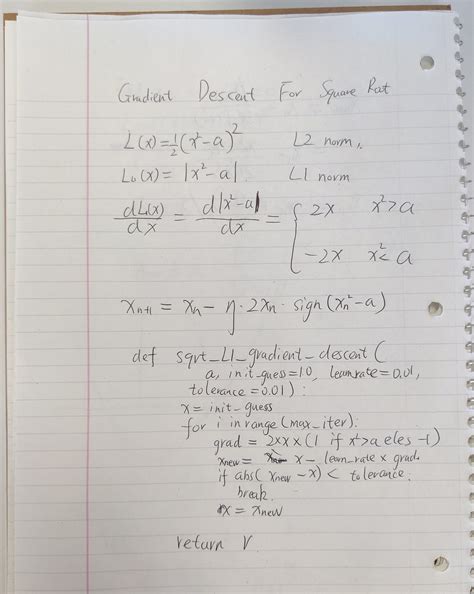 Gradient Descent For Square Root
L(x)=½(x²-a)² L2 norm,
L₁(x)= |x²-a|. L1 norm
dL(x)/dx = d|x²-a|/dx = { 2x x²>a
-2x x²< a
xₙ₊₁ = xₙ - η·2xₙ·sign(xₙ²-a)
def sqrt_L1_gradient_descent(
a, init_guess=10, learnrate=0.01,
tolerance=0.01):
x= init_guess
for i in range(max_iter):
grad = 2xxx(1 if x²>a eles -1)
xnew= x- learn_rate x grad.
if abs(xnew -x) < tolerance.
break.
x = xnew
return